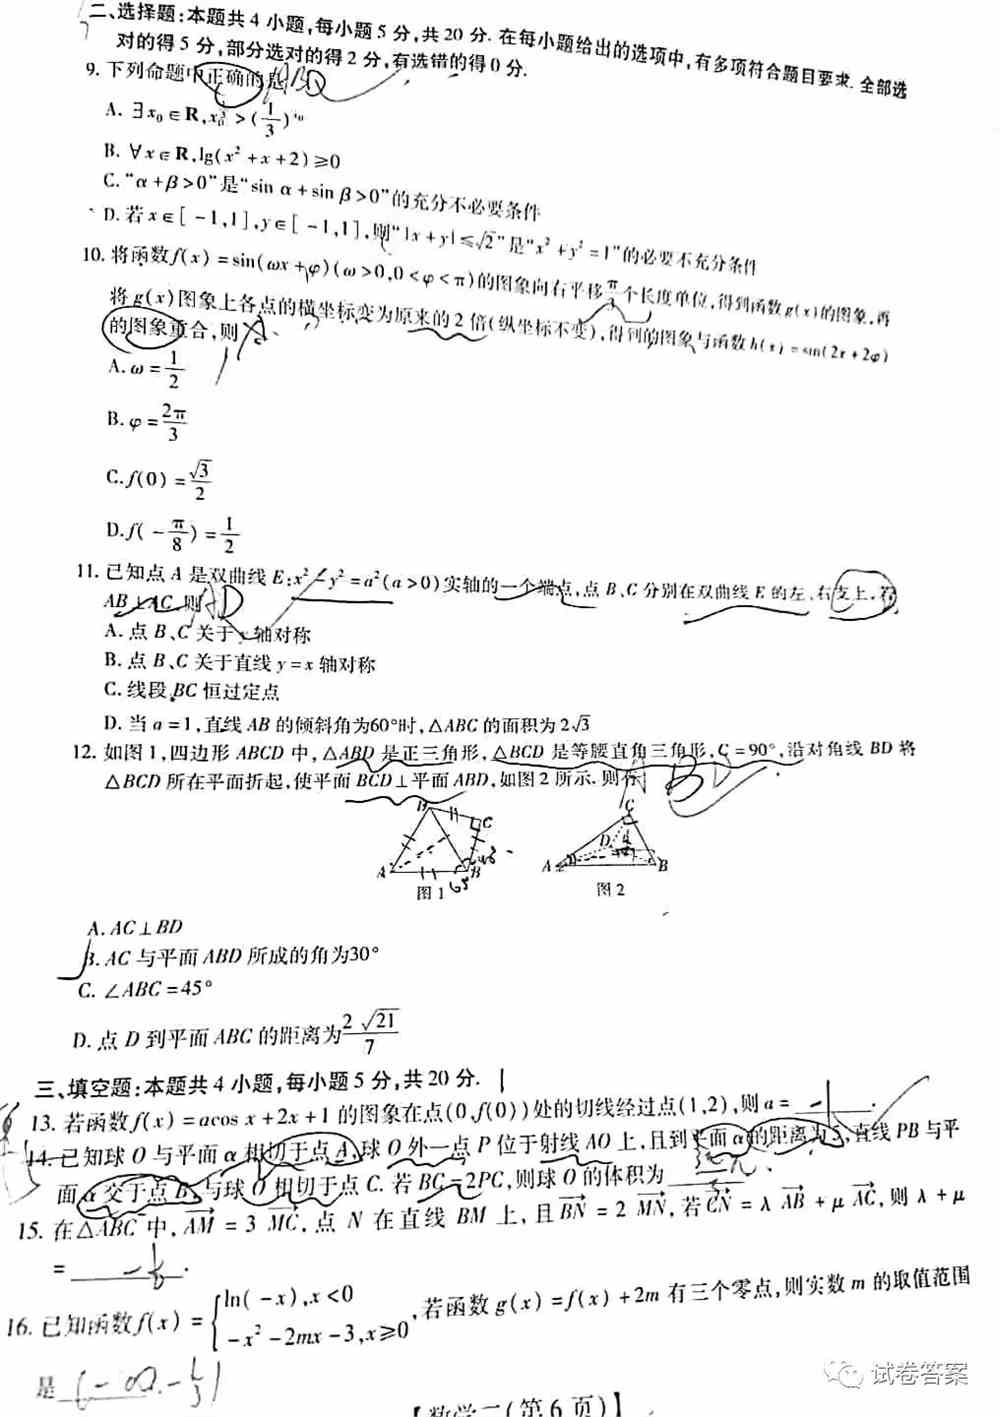 二、选择题:本题共4小题,每小题5分,共20分.在每小题给出的选项中,有多项符合题目要求.全部选
对的得5分,部分选对的得2分,有选错的得0分.
9.下列命题中正确的是
A. ∃x₀∈R,x₀³>(1/3)^x₀
B. ∀x∈R,lg(x²+x+2)≥0
C.“α+β>0”是“sin α+sin β>0”的充分不必要条件
D.若x∈[-1,1],y∈[-1,1],则“|x+y|≤√2”是“x²+y²=1”的必要不充分条件
10.将函数f(x)=sin(ωx+φ)(ω>0,0<φ<π)的图象向右平移π/3个长度单位,得到函数g(x)的图象,再
将g(x)图象上各点的横坐标变为原来的2倍(纵坐标不变),得到的图象与函数h(x)=sin(2x+2φ)
的图象重合,则
A.ω=1/2
B.φ=2π/3
C.f(0)=√3/2
D.f(-π/8)=1/2
11.已知点A是双曲线E:x²-y²=a²(a>0)实轴的一个端点,点B、C分别在双曲线E的左、右支上,若
AB⊥AC,则
A.点B、C关于y轴对称
B.点B、C关于直线y=x轴对称
C.线段BC恒过定点
D.当a=1,直线AB的倾斜角为60°时,△ABC的面积为2√3
12.如图1,四边形ABCD中,△ABD是正三角形,△BCD是等腰直角三角形,C=90°,沿对角线BD将
△BCD所在平面折起,使平面BCD⊥平面ABD,如图2所示.则
D C
A B
图1
C
D
A B
图2
A.AC⊥BD
B.AC与平面ABD所成的角为30°
C.∠ABC=45°
D.点D到平面ABC的距离为2√21/7
三、填空题:本题共4小题,每小题5分,共20分.
13.若函数f(x)=acos x+2x+1的图象在点(0,f(0))处的切线经过点(1,2),则a=-1.
14.已知球O与平面α相切于点A,球O外一点P位于射线AO上,且到平面α的距离为5,直线PB与平
面α交于点B,与球O相切于点C.若BC=2PC,则球O的体积为
15.在△ABC中,AM=3MC,点N在直线BM上,且BN=2MN,若CN=λAB+μAC,则λ+μ
=.
16.已知函数f(x)={ln(-x),x<0
-x²-2mx-3,x≥0,若函数g(x)=f(x)+2m有三个零点,则实数m的取值范围
是
试卷答案
【数学二(第6页)】